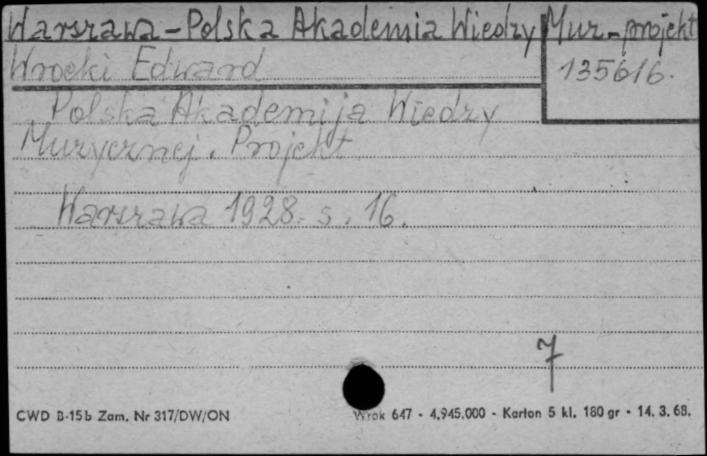 Warszawa-Polska Akademia Wiedzy Muz-projekt
Wrocki Edward 135616.
Polska Akademija Wiedzy
Muzycznej. Projekt
Warszawa 1928. s. 16.
7
CWD B-15b Zam. Nr 317/DW/ON
647 - 4.945.000 - Karton 5 kl. 180 gr - 14. 3. 68.